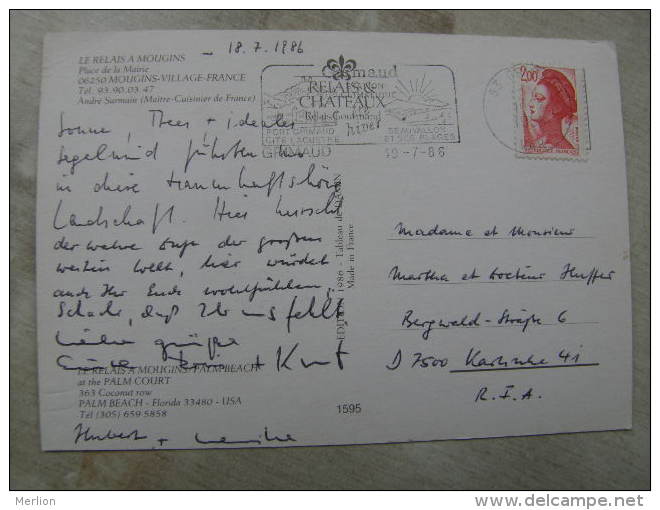 18.7.1986
LE RELAIS A MOUGINS
Place de la Mairie
06250 MOUGINS-VILLAGE-FRANCE
Tél. 93.90.03.47
André Surmain (Maître-Cuisinier de France)
Grimaud
RELAIS &
CHATEAUX
Relais Gourmand
PORT GRIMAUD
CITÉ LACUSTRE
BEAUVALLON
ET SES PLAGES
GRIMAUD
19-7-86
2,00
Sonne, Meer + idealer
Segelwind führten uns
in diese traumhaftschöne
Landschaft. Hier herrscht
der wahre Luxe der großen
weiten Welt, hier würdet
auch Ihr Euch wohlfühlen.
Schade, daß Ihr uns fehlt
Liebe Grüße
+ Kurt
Hubert +
LE RELAIS A MOUGINS/PALM BEACH
at the PALM COURT
363 Coconut row
PALM BEACH - Florida 33480 - USA
Tél (305) 659 5858
1986 - Tableau de
Made in France
1595
Madame et Monsieur
Martha et Docteur Huffer
Bergwald-Straße 6
D 7500 Karlsruhe 41
R.F.A.
Merlion
www.delcampe.net